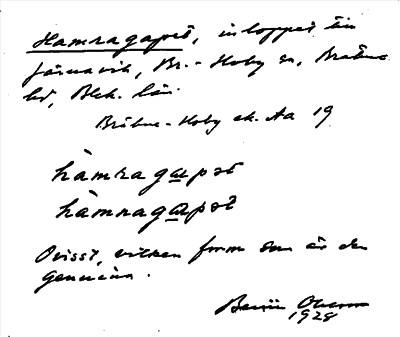 Hamragapet, inloppet till
Järnavik, Br.-Hoby sn, Bräkne
hd, Blek. län.
Bräkne-Hoby ek. Aa 19
hamragapet
hamnagapet
Ovisst, vilken form som är den
genuina.
1928